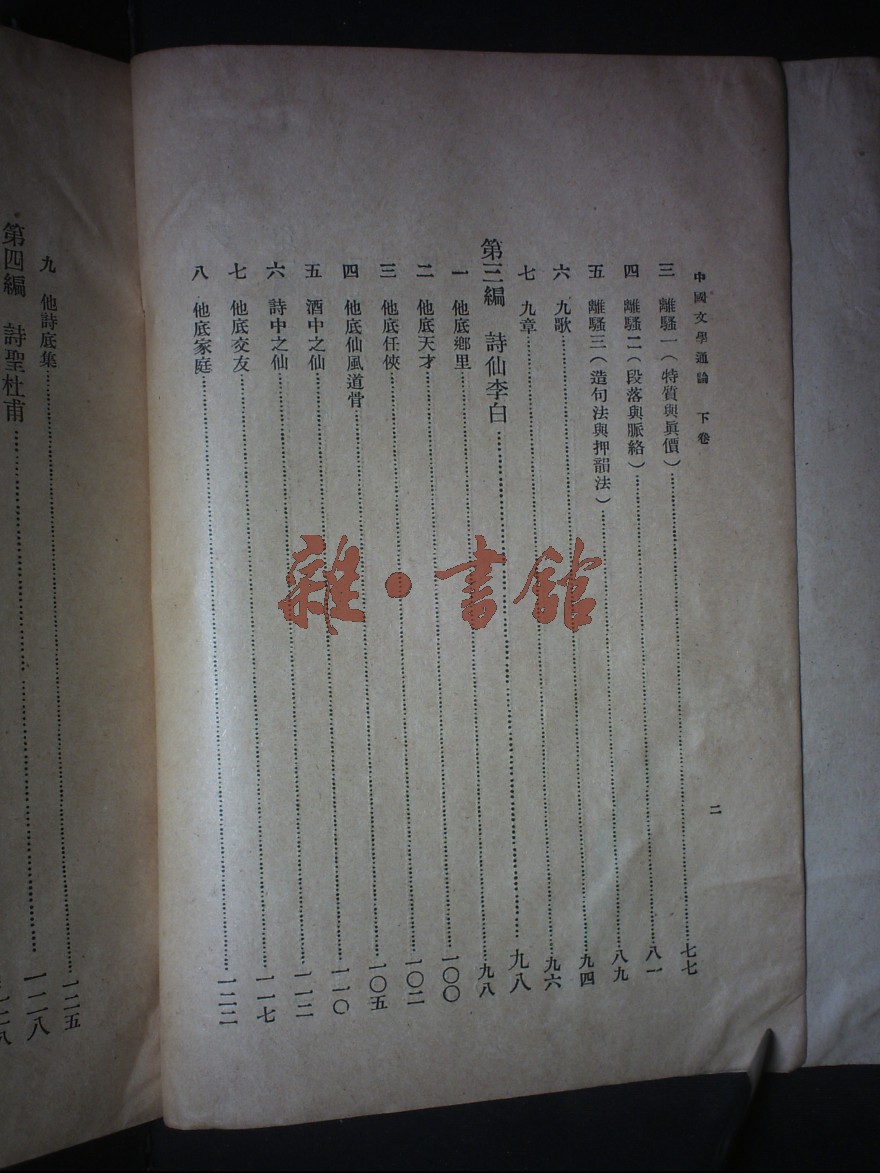 中國文學通論 下卷 二
三 離騷一(特質與眞價)……七七
四 離騷二(段落與脈絡)……八一
五 離騷三(造句法與押韻法)……八九
六 九歌……九四
七 九章……九六
第三編 詩仙李白……九八
一 他底鄉里……九八
二 他底天才……一〇〇
三 他底任俠……一〇二
四 他底仙風道骨……一〇五
五 酒中之仙……一一〇
六 詩中之仙……一一二
七 他底交友……一一七
八 他底家庭……一二二
九 他詩底集……一二五
第四編 詩聖杜甫……一二八
雜·書館